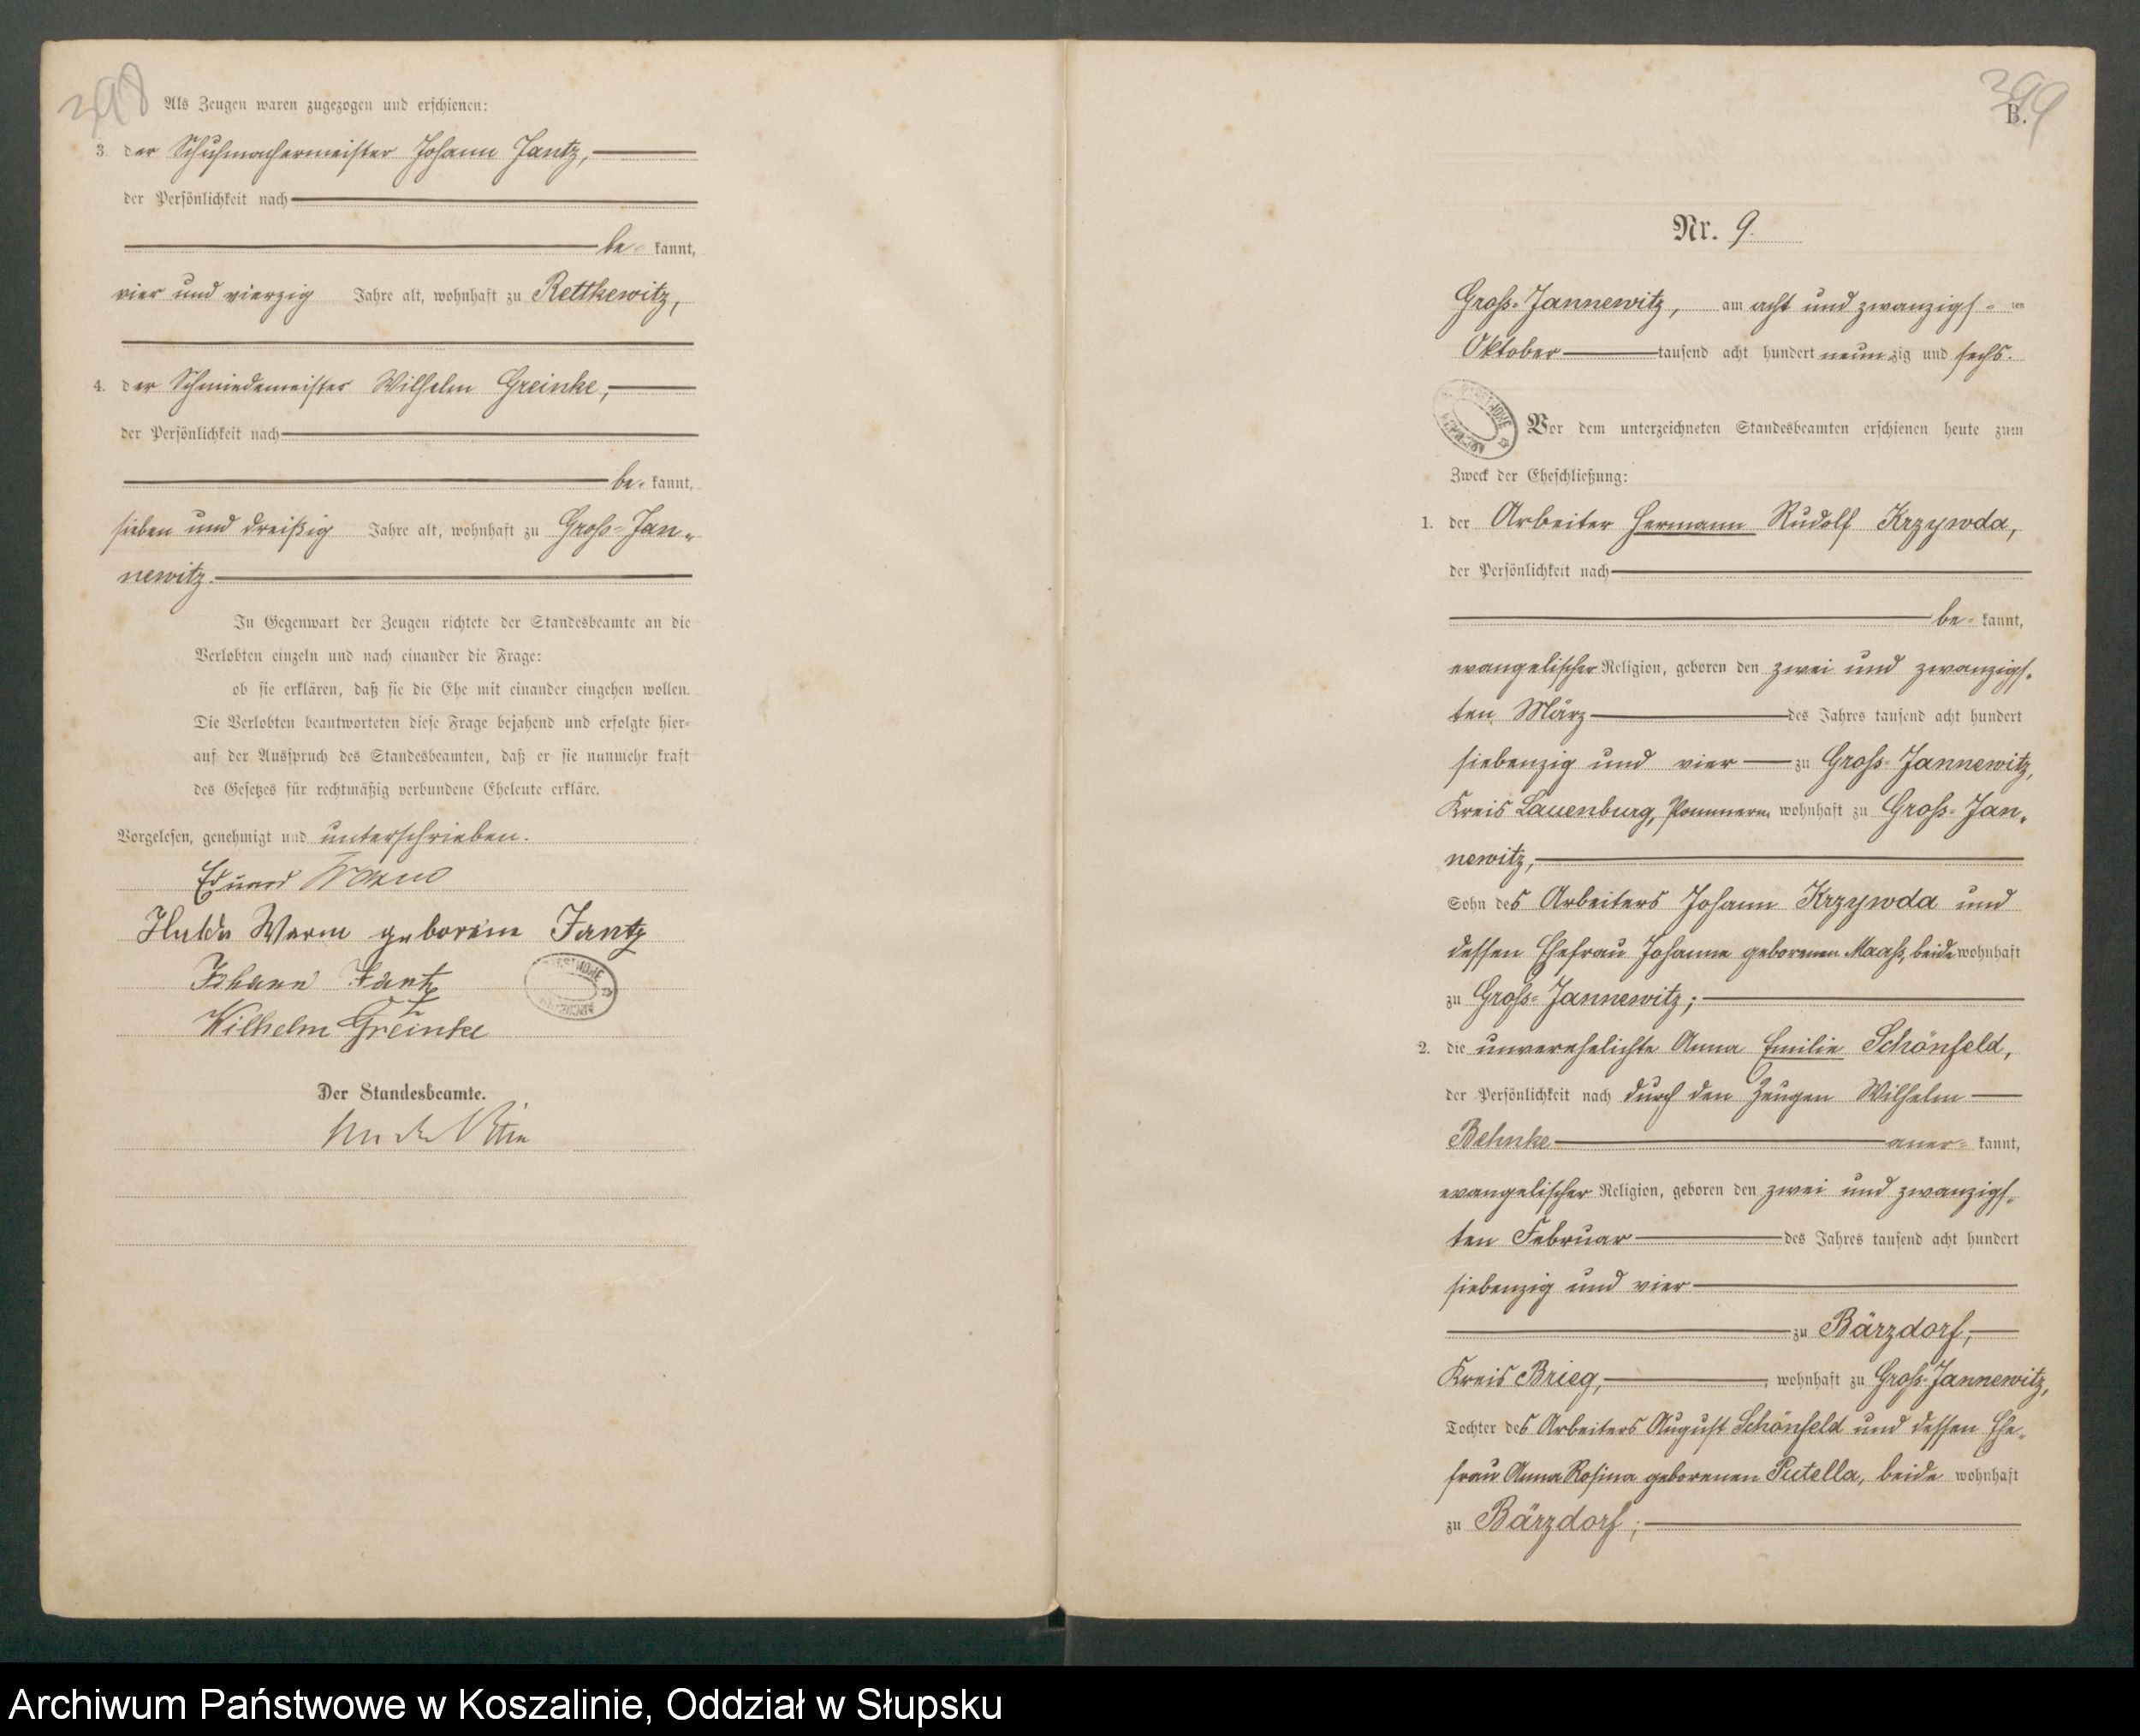 398
Als Zeugen waren zugezogen und erschienen:
3. der Schuhmachermeister Johann Jantz,
der Persönlichkeit nach
be= kannt,
vier und vierzig Jahre alt, wohnhaft zu Rettkewitz,
4. der Schmiedemeister Wilhelm Greinke,
der Persönlichkeit nach
be= kannt,
sieben und dreißig Jahre alt, wohnhaft zu Groß=Jan=
newitz.
In Gegenwart der Zeugen richtete der Standesbeamte an die
Verlobten einzeln und nach einander die Frage:
ob sie erklären, daß sie die Ehe mit einander eingehen wollen.
Die Verlobten beantworteten diese Frage bejahend und erfolgte hier=
auf der Ausspruch des Standesbeamten, daß er sie nunmehr kraft
des Gesetzes für rechtmäßig verbundene Eheleute erkläre.
Vorgelesen, genehmigt und unterschrieben.
Eduard Warm
Hulda Warm geborene Jantz
Johann Jantz
Wilhelm Greinke
Der Standesbeamte.
399
B.
Nr. 9.
Groß=Jannewitz, am acht und zwanzigs= ten
Oktober tausend acht hundert neunzig und sechs.
Vor dem unterzeichneten Standesbeamten erschienen heute zum
Zweck der Eheschließung:
1. der Arbeiter Hermann Rudolf Krzywda,
der Persönlichkeit nach
be= kannt,
evangelischer Religion, geboren den zwei und zwanzigs=
ten März des Jahres tausend acht hundert
siebenzig und vier zu Groß=Jannewitz,
Kreis Lauenburg, Pommern, wohnhaft zu Groß=Jan=
newitz,
Sohn des Arbeiters Johann Krzywda und
dessen Ehefrau Johanne geborenen Maaß, beide wohnhaft
zu Groß=Jannewitz;
2. die unverehelichte Anna Emilie Schönfeld,
der Persönlichkeit nach durch den Zeugen Wilhelm
Behnke aner= kannt,
evangelischer Religion, geboren den zwei und zwanzigs=
ten Februar des Jahres tausend acht hundert
siebenzig und vier
zu Bärzdorf,
Kreis Brieg, wohnhaft zu Groß=Jannewitz,
Tochter des Arbeiters August Schönfeld und dessen Ehe=
frau Anna Rosina geborenen Putella, beide wohnhaft
zu Bärzdorf;
Archiwum Państwowe w Koszalinie, Oddział w Słupsku